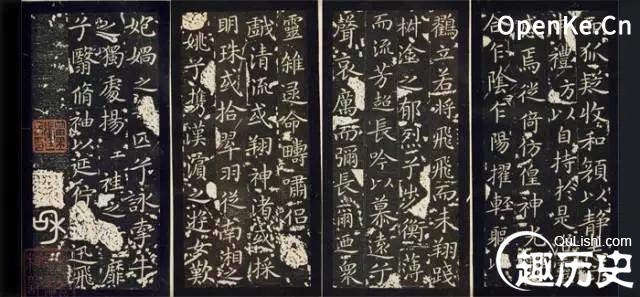 狐疑收和顏以靜
禮防以自持於是
焉徙倚彷徨神
合乍陰乍陽擢輕軀
鸛立若將飛飛而未翔踐
椒塗之郁烈兮步衡薄
而流芳超長吟以慕遠兮
聲哀厲而彌長爾迺眾
靈雜遝命疇嘯侶
戲清流或翔神渚或採
明珠或拾翠羽從南湘之
姚兮攜漢濱之遊女歎
媧之匹兮詠牽牛
之獨處揚袿之靡
兮翳脩袖以延佇迅飛
OpenKe.Cn
QuLiShi.com
趣历史